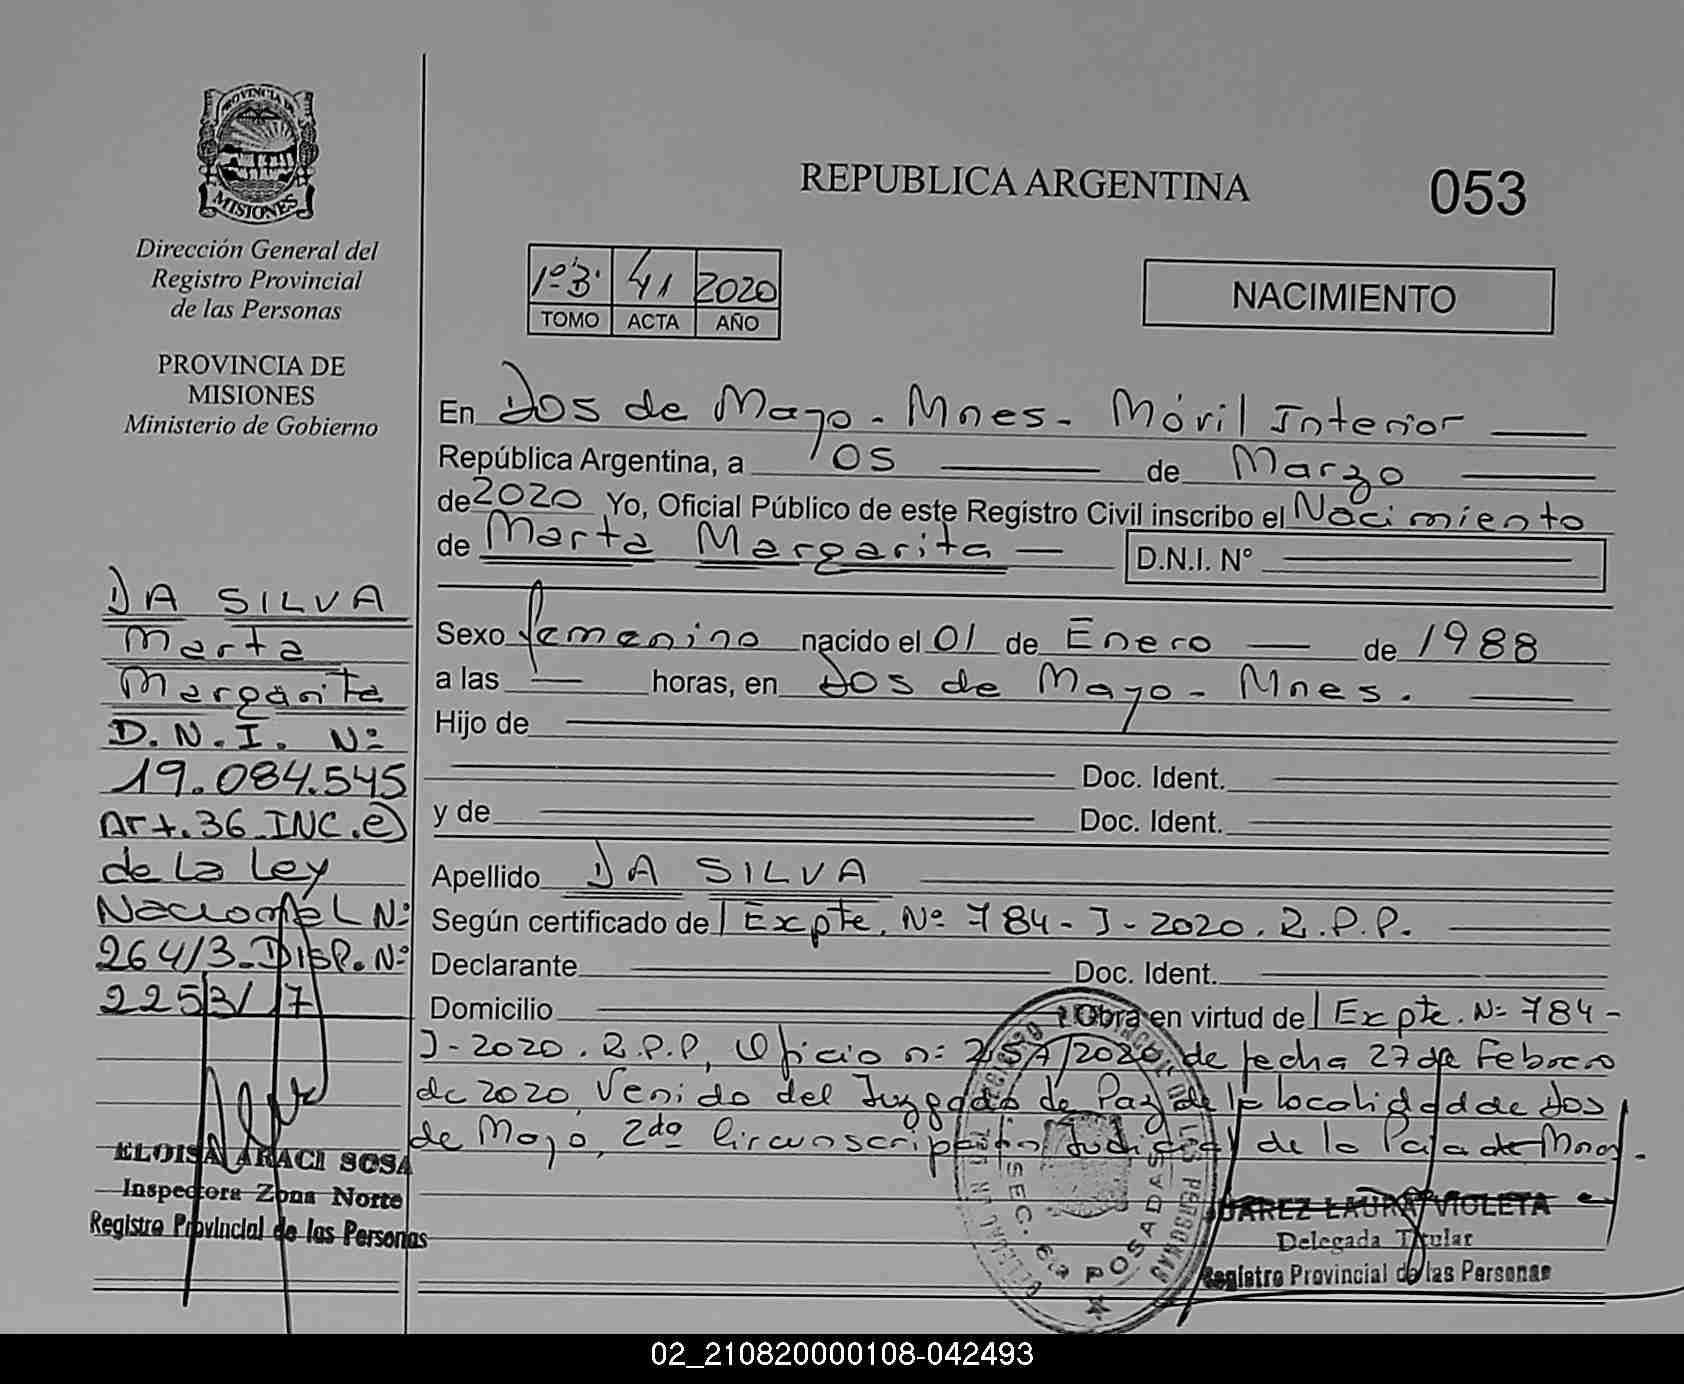 PROVINCIA DE
MISIONES
Dirección General del
Registro Provincial
de las Personas
PROVINCIA DE
MISIONES
Ministerio de Gobierno
DA SILVA
Marta
Margarita
D.N.I. Nº
19.084.545
Art. 36 INC. e)
de La Ley
Nacional Nº
264/3-Disp. Nº
2253/17
ELOISA ARACI SOSA
Inspectora Zona Norte
Registro Provincial de las Personas
REPUBLICA ARGENTINA
053
1º"B" 41 2020
TOMO ACTA AÑO
NACIMIENTO
En Dos de Mayo - Mnes - Móvil Interior
República Argentina, a 05 de Marzo
de 2020 Yo, Oficial Público de este Registro Civil inscribo el Nacimiento
de Marta Margarita D.N.I. Nº
Sexo femenino nacido el 01 de Enero de 1988
a las horas, en Dos de Mayo - Mnes.
Hijo de
Doc. Ident.
y de Doc. Ident.
Apellido DA SILVA
Según certificado de Expte. Nº 784-J-2020. R.P.P.
Declarante Doc. Ident.
Domicilio Obra en virtud de Expte. Nº 784-
J-2020. R.P.P, Oficio nº 257/2020 de fecha 27 de Febrero
de 2020, Venido del Juzgado de Paz de la localidad de Dos
de Mayo, 2da Circunscripción Judicial de la Pcia de Mnes.
SEC. 6ta POSADAS
SUAREZ LAURA VIOLETA
Delegada Titular
Registro Provincial de las Personas
02_210820000108-042493